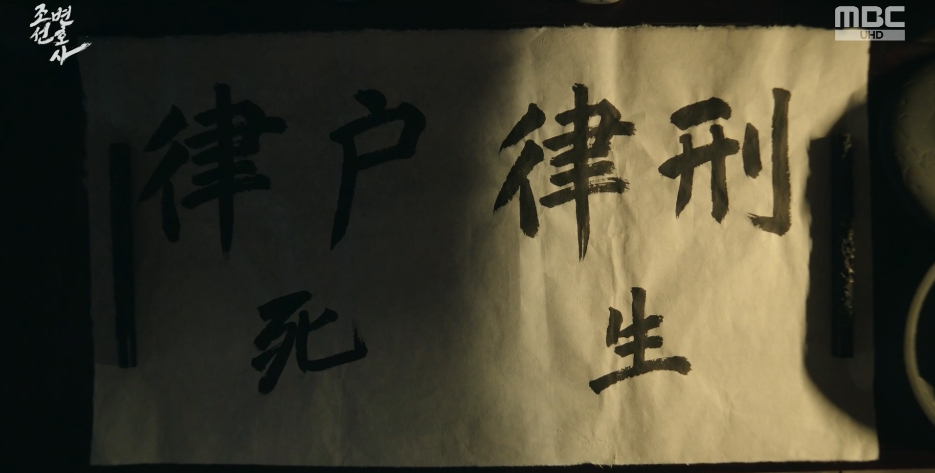 조선변호사
MBC
UHD
律户 律刑
死 生